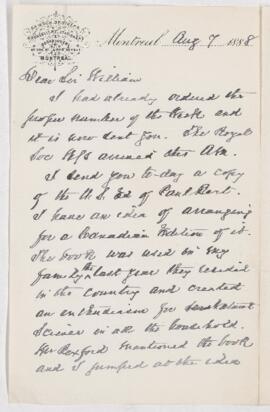 MONTREAL.
Montreal Aug 7 1888
Dear Sir William
I had already ordered the
proper number of the Book and
it is now sent you. The Royal
Soc arrived this AM.
I send you to-day a copy
of the U.S. Ed of Paul Bert.
I have an idea of arranging
for a Canadian Edition of it.
The book was used in my
family the last year they resided
in the country and created
an enthusiasm for
Science in all the household.
Mr Rexford mentioned the book
and I jumped at the idea